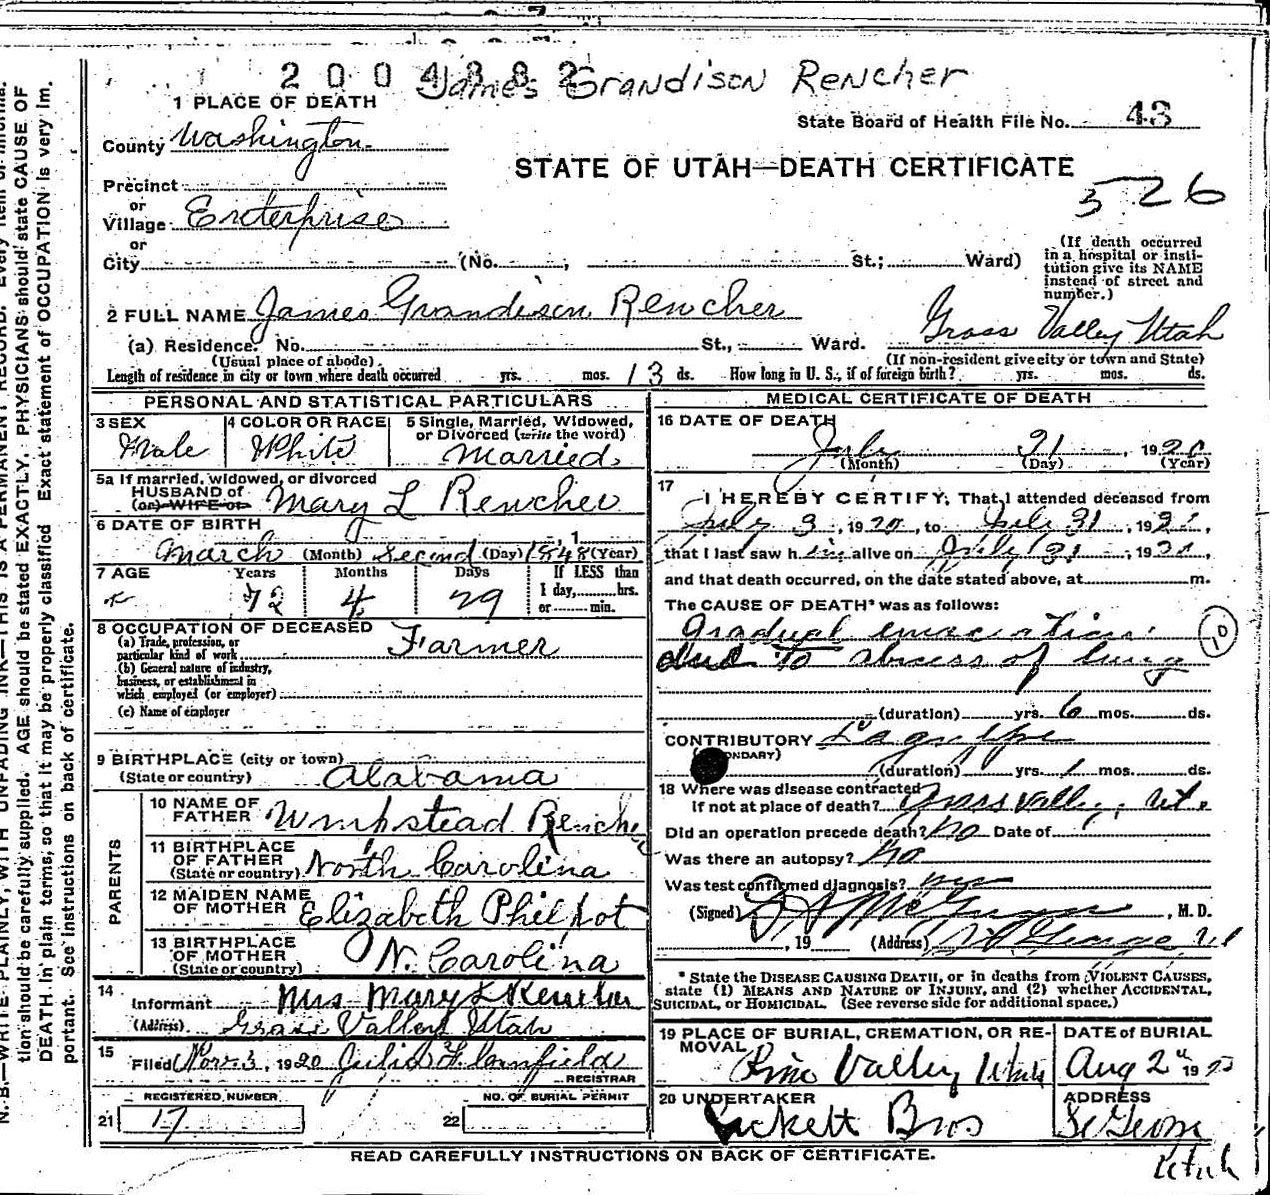 2004882 James Grandison Rencher
1 PLACE OF DEATH
State Board of Health File No. 43
County Washington
STATE OF UTAH—DEATH CERTIFICATE
Precinct
526
or
Village Enterprise
or
City (No. , St.; Ward)
(If death occurred in a hospital or insti-
tution give its NAME
instead of street and
number.)
2 FULL NAME James Grandison Rencher
Grass Valley Utah
(a) Residence. No. St., Ward.
(Usual place of abode) (If non-resident give city or town and State)
Length of residence in city or town where death occurred yrs. mos. 13 ds. How long in U. S., if of foreign birth? yrs. mos. ds.
PERSONAL AND STATISTICAL PARTICULARS
3 SEX 4 COLOR OR RACE 5 Single, Married, Widowed,
or Divorced (write the word)
Male White Married
5a If married, widowed, or divorced
HUSBAND of
(or) WIFE of Mary L Rencher
6 DATE OF BIRTH
March (Month) Second (Day) 1848 (Year)
7 AGE Years Months Days If LESS than
1 day, hrs.
or min.
72 4 29
8 OCCUPATION OF DECEASED
(a) Trade, profession, or
particular kind of work Farmer
(b) General nature of industry,
business, or establishment in
which employed (or employer)
(c) Name of employer
9 BIRTHPLACE (city or town)
(State or country) Alabama
PARENTS
10 NAME OF
FATHER Umpstead Rencher
11 BIRTHPLACE
OF FATHER
(State or country) North Carolina
12 MAIDEN NAME
OF MOTHER Elizabeth Philpot
13 BIRTHPLACE
OF MOTHER
(State or country) N. Carolina
14
Informant Mrs Mary L Rencher
(Address) Grass Valley Utah
15
Filed Nov. 3, 1920 Julia F. Canfield
REGISTRAR
REGISTERED NUMBER NO. OF BURIAL PERMIT
21 17 22
MEDICAL CERTIFICATE OF DEATH
16 DATE OF DEATH
July 31, 1920
(Month) (Day) (Year)
17
I HEREBY CERTIFY, That I attended deceased from
July 3, 1920, to July 31, 192
that I last saw him alive on July 31, 192
and that death occurred, on the date stated above, at m.
The CAUSE OF DEATH* was as follows:
Gradual emaciation
due to abscess of lung
10
(duration) yrs. 6 mos. ds.
CONTRIBUTORY Lagrippe
(SECONDARY)
(duration) yrs. 1 mos. ds.
18 Where was disease contracted
if not at place of death? Grass Valley, Ut.
Did an operation precede death? No Date of
Was there an autopsy? No
Was test confirmed diagnosis? yes
(Signed) McGregor, M. D.
, 19 (Address) St George Ut
* State the DISEASE CAUSING DEATH, or in deaths from VIOLENT CAUSES,
state (1) MEANS AND NATURE OF INJURY, and (2) whether ACCIDENTAL,
SUICIDAL, or HOMICIDAL. (See reverse side for additional space.)
19 PLACE OF BURIAL, CREMATION, OR RE-
MOVAL
Pine Valley Utah
DATE of BURIAL
Aug 2" 19
20 UNDERTAKER
Pickett Bros
ADDRESS
St George
Utah
READ CAREFULLY INSTRUCTIONS ON BACK OF CERTIFICATE.
N. B.—WRITE PLAINLY, WITH UNFADING INK—THIS IS A PERMANENT RECORD. Every item of informa-
tion should be carefully supplied. AGE should be stated EXACTLY. PHYSICIANS should state CAUSE OF
DEATH in plain terms, so that it may be properly classified. Exact statement of OCCUPATION is very im-
portant. See instructions on back of certificate.